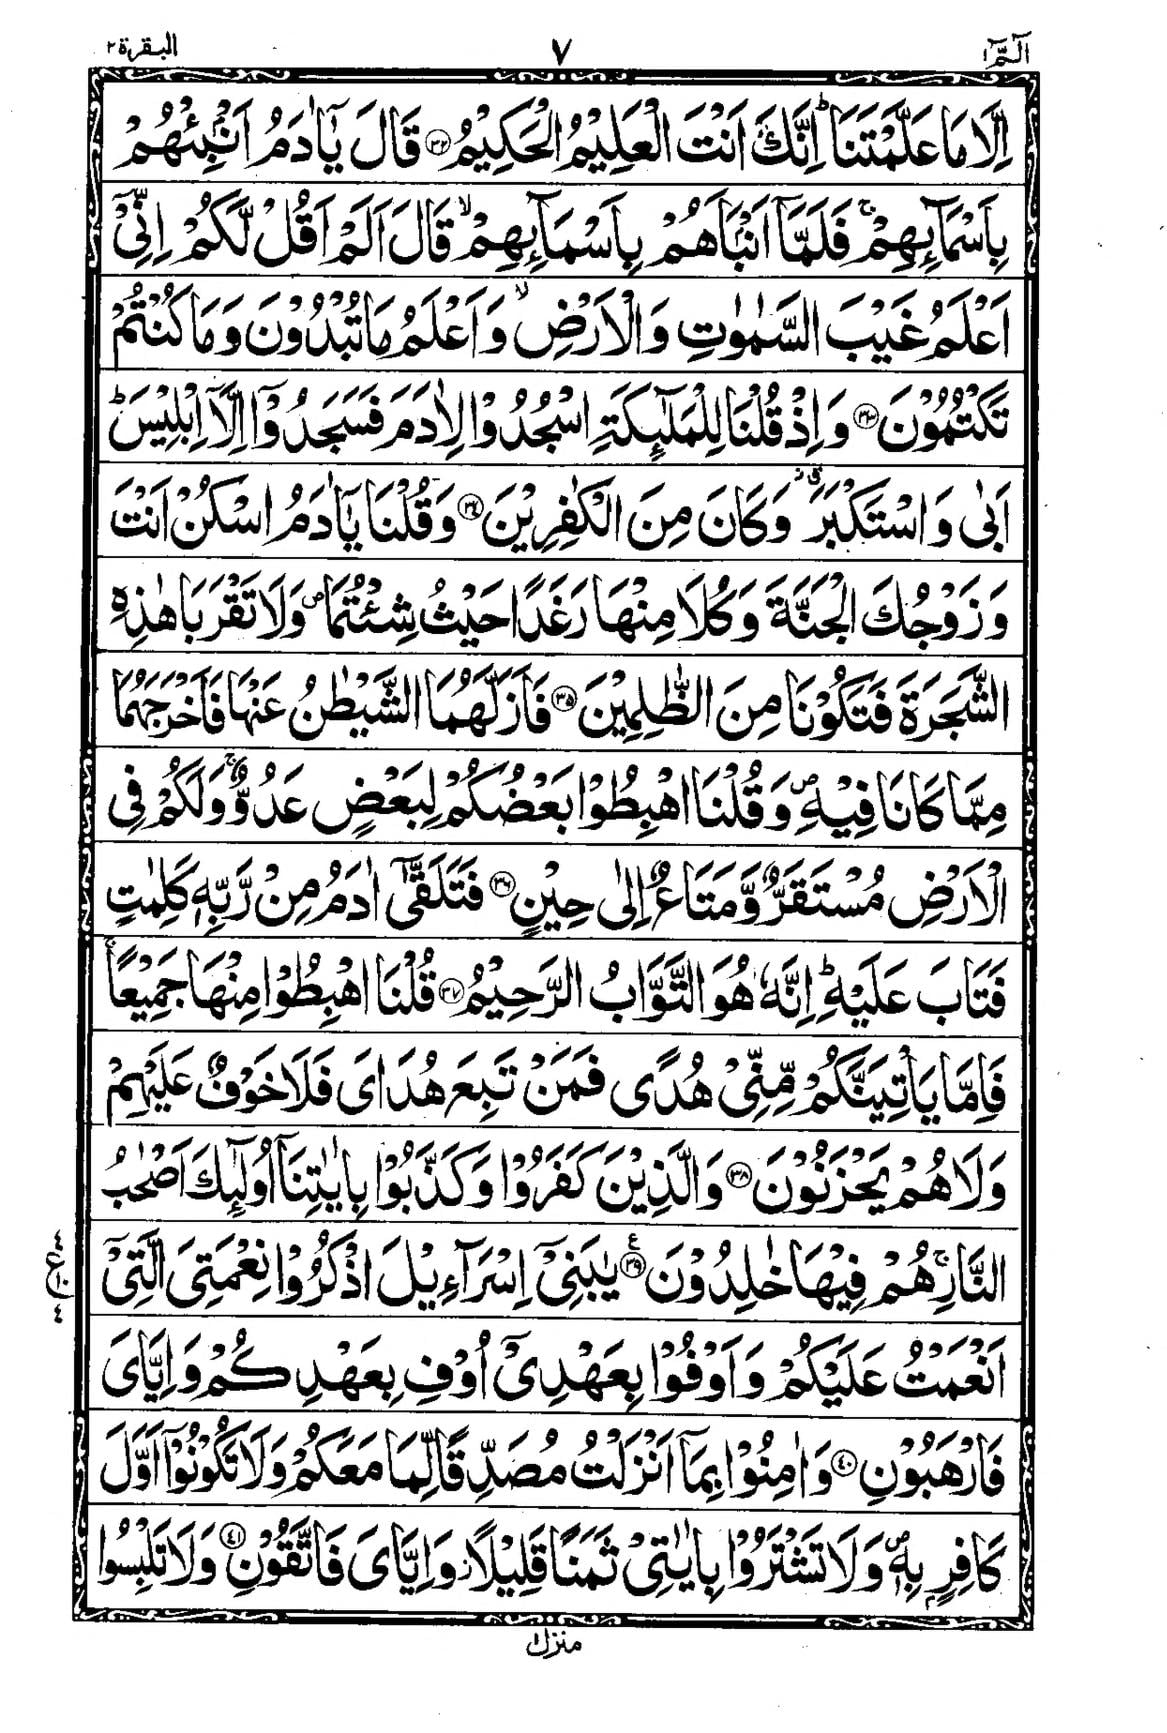 الٓمّٓ ١ ٧ البقرة ٢
اِلَّا مَا عَلَّمْتَنَا ؕ اِنَّكَ اَنْتَ الْعَلِیْمُ الْحَكِیْمُ ﴿۳۲﴾ قَالَ یٰۤاٰدَمُ اَنْۢبِئْهُمْ
بِاَسْمَآىِٕهِمْ ۚ فَلَمَّاۤ اَنْۢبَاَهُمْ بِاَسْمَآىِٕهِمْ ۙ قَالَ اَلَمْ اَقُلْ لَّكُمْ اِنِّیْۤ
اَعْلَمُ غَیْبَ السَّمٰوٰتِ وَالْاَرْضِ ۙ وَاَعْلَمُ مَا تُبْدُوْنَ وَمَا كُنْتُمْ
تَكْتُمُوْنَ ﴿۳۳﴾ وَاِذْ قُلْنَا لِلْمَلٰٓىِٕكَةِ اسْجُدُوْا لِاٰدَمَ فَسَجَدُوْۤا اِلَّاۤ اِبْلِیْسَ ؕ
اَبٰی وَاسْتَكْبَرَ ۗ٘ وَكَانَ مِنَ الْكٰفِرِیْنَ ﴿۳۴﴾ وَقُلْنَا یٰۤاٰدَمُ اسْكُنْ اَنْتَ
وَزَوْجُكَ الْجَنَّةَ وَكُلَا مِنْهَا رَغَدًا حَیْثُ شِئْتُمَا ۪ وَلَا تَقْرَبَا هٰذِهِ
الشَّجَرَةَ فَتَكُوْنَا مِنَ الظّٰلِمِیْنَ ﴿۳۵﴾ فَاَزَلَّهُمَا الشَّیْطٰنُ عَنْهَا فَاَخْرَجَهُمَا
مِمَّا كَانَا فِیْهِ ۪ وَقُلْنَا اهْبِطُوْا بَعْضُكُمْ لِبَعْضٍ عَدُوٌّ ۚ وَلَكُمْ فِی
الْاَرْضِ مُسْتَقَرٌّ وَّمَتَاعٌ اِلٰی حِیْنٍ ﴿۳۶﴾ فَتَلَقّٰۤی اٰدَمُ مِنْ رَّبِّهٖ كَلِمٰتٍ
فَتَابَ عَلَیْهِ ؕ اِنَّهٗ هُوَ التَّوَّابُ الرَّحِیْمُ ﴿۳۷﴾ قُلْنَا اهْبِطُوْا مِنْهَا جَمِیْعًا ۚ
فَاِمَّا یَاْتِیَنَّكُمْ مِّنِّیْ هُدًی فَمَنْ تَبِعَ هُدَایَ فَلَا خَوْفٌ عَلَیْهِمْ
وَلَا هُمْ یَحْزَنُوْنَ ﴿۳۸﴾ وَالَّذِیْنَ كَفَرُوْا وَكَذَّبُوْا بِاٰیٰتِنَاۤ اُولٰٓىِٕكَ اَصْحٰبُ
النَّارِ ۚ هُمْ فِیْهَا خٰلِدُوْنَ ﴿۳۹﴾ ع یٰبَنِیْۤ اِسْرَآءِیْلَ اذْكُرُوْا نِعْمَتِیَ الَّتِیْۤ
اَنْعَمْتُ عَلَیْكُمْ وَاَوْفُوْا بِعَهْدِیْۤ اُوْفِ بِعَهْدِكُمْ وَاِیَّایَ
فَارْهَبُوْنِ ﴿۴۰﴾ وَاٰمِنُوْا بِمَاۤ اَنْزَلْتُ مُصَدِّقًا لِّمَا مَعَكُمْ وَلَا تَكُوْنُوْۤا اَوَّلَ
كَافِرٍۭ بِهٖ ۪ وَلَا تَشْتَرُوْا بِاٰیٰتِیْ ثَمَنًا قَلِیْلًا ؗ وَاِیَّایَ فَاتَّقُوْنِ ﴿۴۱﴾ وَلَا تَلْبِسُوا
منزل ١